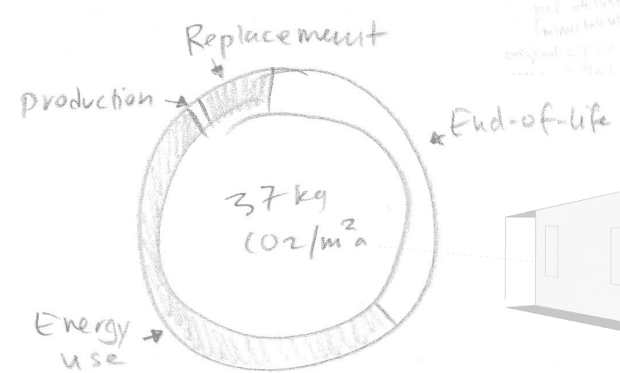 Replacement
production
End-of-life
37 kg
CO2/m²a
Energy
use